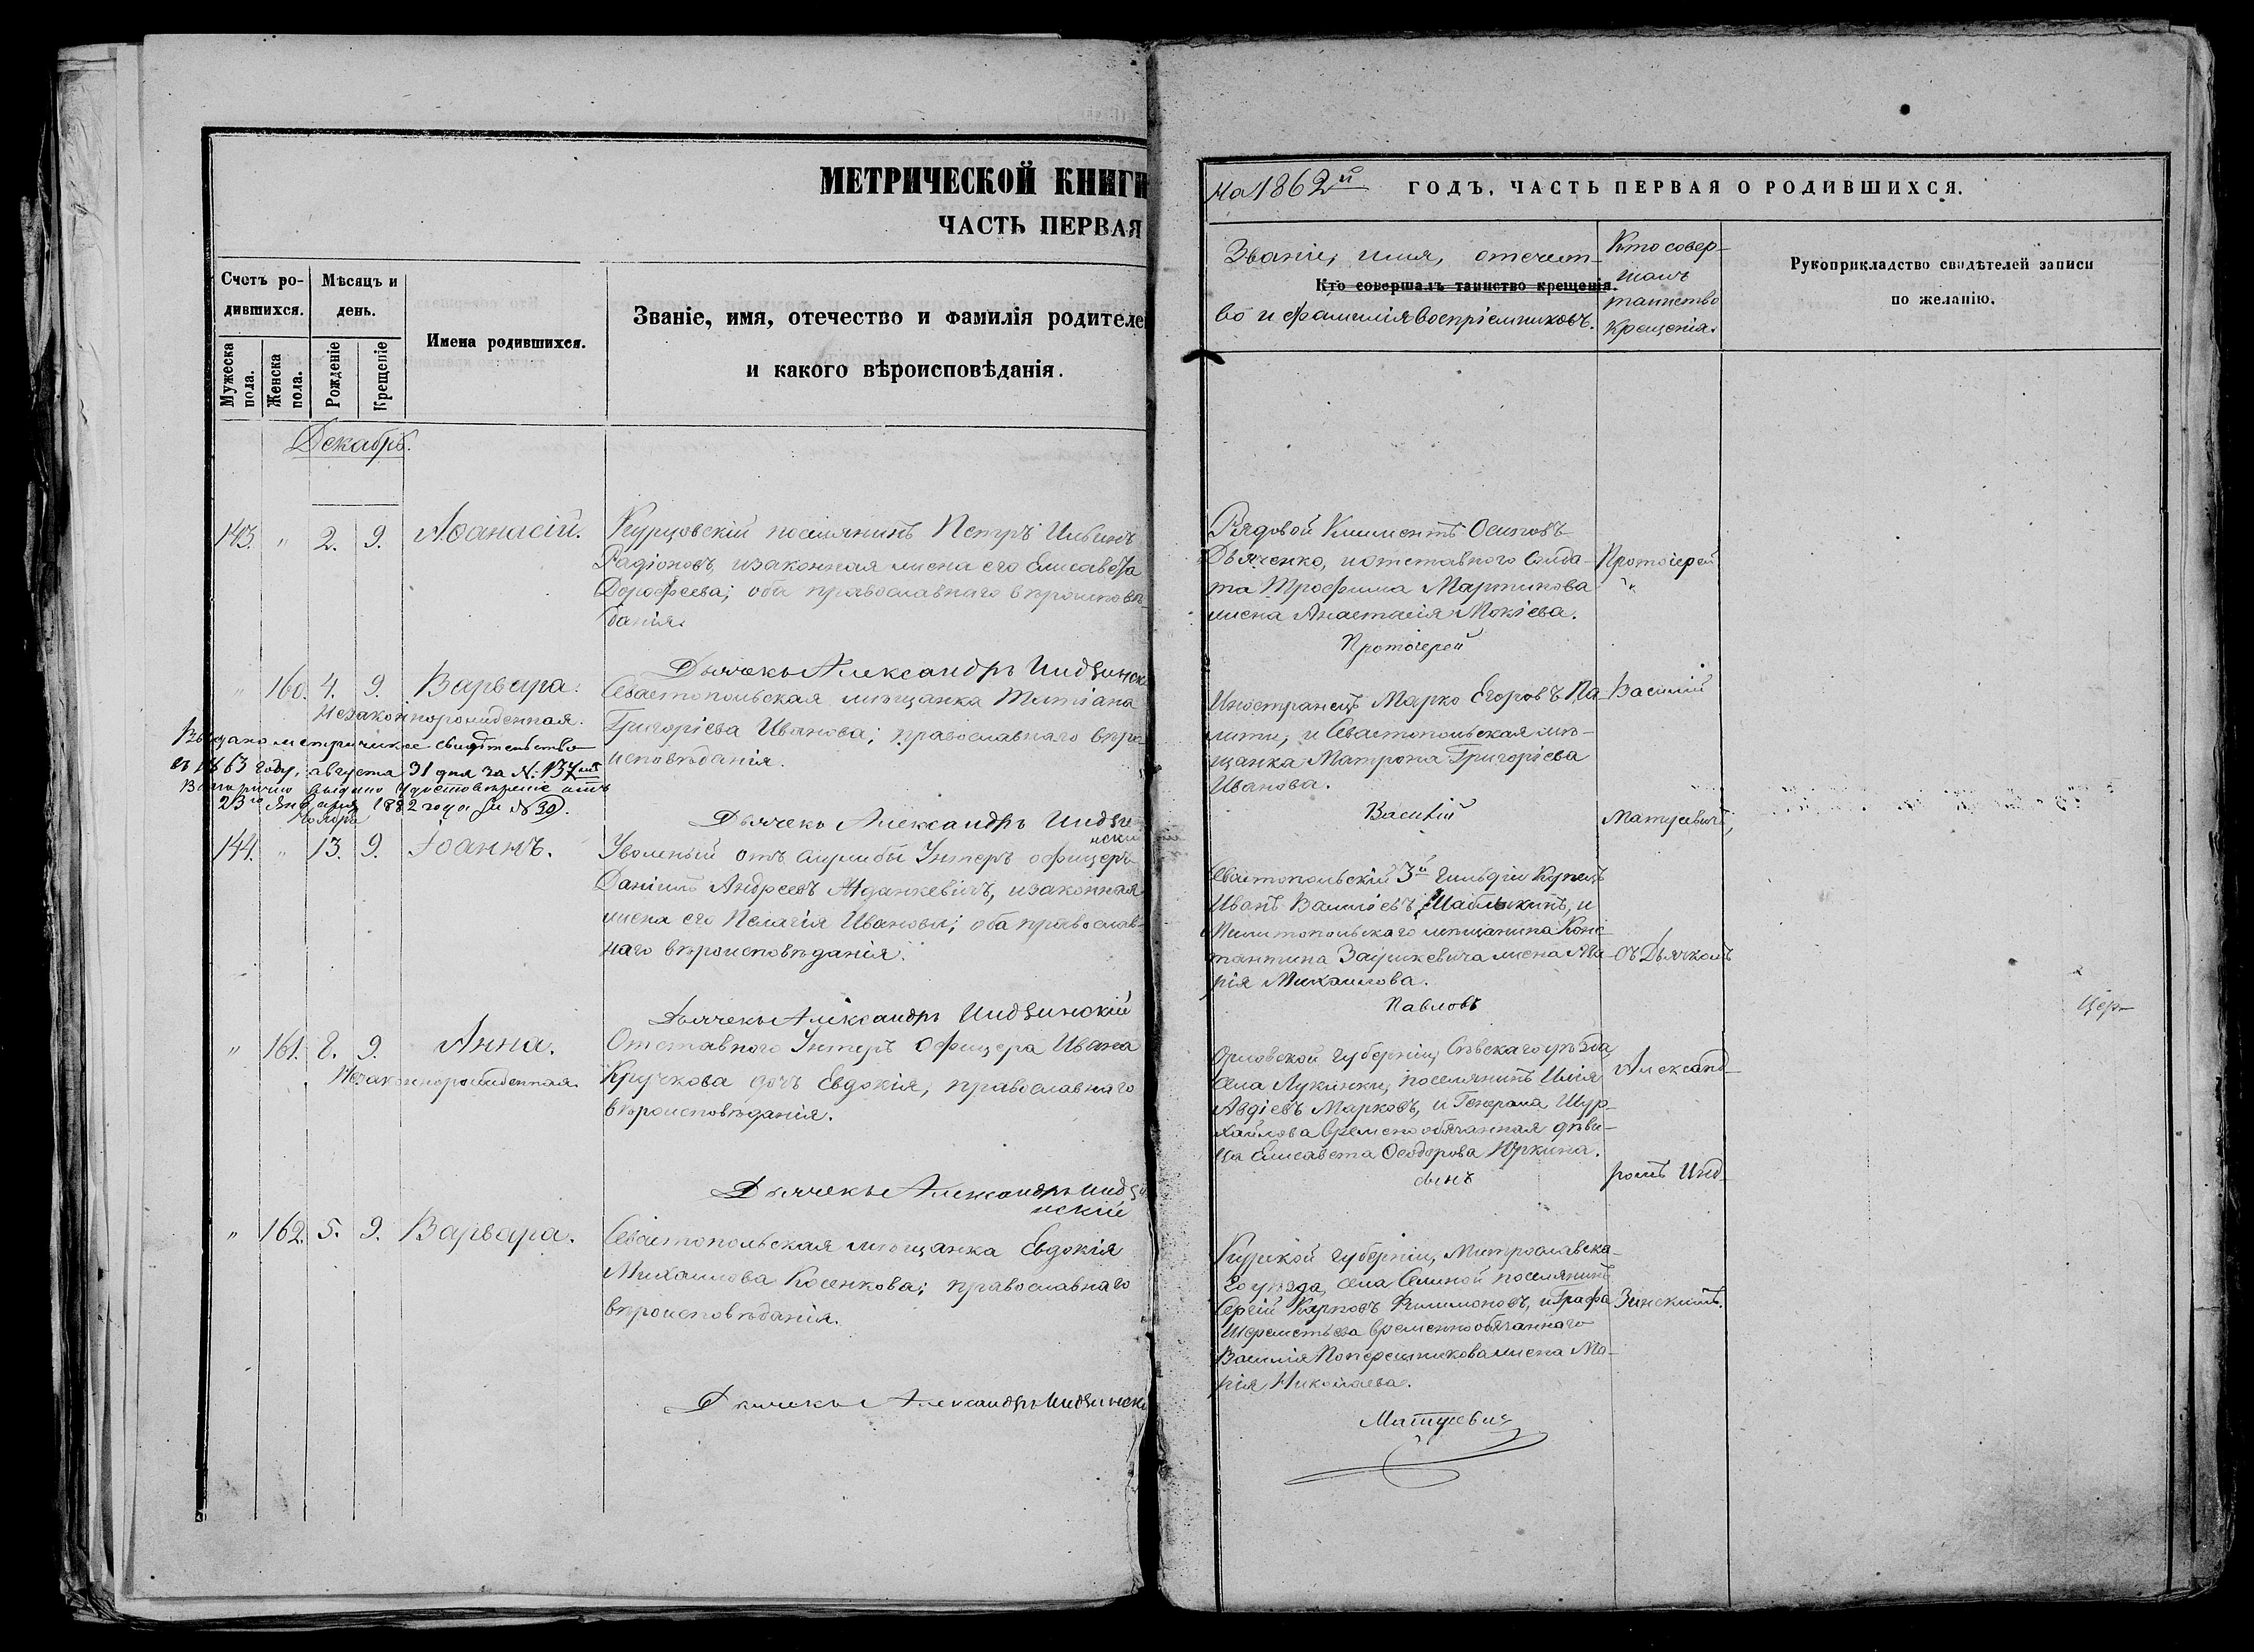 МЕТРИЧЕСКОЙ КНИГИ
ЧАСТЬ ПЕРВАЯ
Счетъ ро-
дившихся.
Мужеска пола.
Женска пола.
Мѣсяцъ и
день.
Рожденіе
Крещеніе
Имена родившихся.
Званіе, имя, отечество и фамилія родителе
и какого вѣроисповѣданія.
Декабрь.
143. " 2. 9. Аѳанасій.
Курцовскій поселянинъ Петръ Ильинъ
Радіоновъ, и законная жена его Елисавета
Дорофеева; оба православнаго вѣроисповѣ-
данія.
Дьячекъ Александръ Индзинск
" 160. 4. 9. Варвара.
Незаконнорожденная.
Севастопольская мѣщанка Татіана
Григоріева Иванова; православнаго вѣро-
исповѣданія.
Выдано метрическое свидѣтельство
въ 1863 году, августа 31 дня за №: 137мъ
Вторично выдано удостовѣреніе отъ
23го Января 1882 года за № 30.
Дьячекъ Александръ Индзи
нскій
Ноября
144. " 13. 9. Іоаннъ.
Уволеный отъ службы Унтеръ офицеръ
Даніилъ Андреевъ Жданкевичъ, и законная
жена его Пелагія Иванова; оба православ-
наго вѣроисповѣданія.
Дьячекъ Александръ Индзинскій
" 161. 8. 9. Анна.
Незаконнорожденная
Отставного Унтеръ Офицера Ивана
Кручкова дочь Евдокія, православнаго
вѣроисповѣданія.
Дьячекъ Александръ Индзи
нскій
" 162. 5. 9. Варвара.
Севастопольская мѣщанка Евдокія
Михаилова Косенкова; православнаго
вѣроисповѣданія.
Дьячекъ Александръ Индзинскі
на 1862й ГОДЪ, ЧАСТЬ ПЕРВАЯ О РОДИВШИХСЯ.
Званіе, имя, отечест-
Кто совершалъ таинство крещенія.
во и фамилія воспріемниковъ.
Кто совер-
шалъ
таинство
крещенія.
Рукоприкладство свидѣтелей записи
по желанію.
Рядовой Климентъ Осиповъ
Дьяченко, и отставного солда-
та Трофима Мартинова
жена Анастасія Мокіева.
Протоіерей
Протоіерей
Иностранецъ Марко Егоровъ Па-
лити, и Севастопольская мѣ-
щанка Матрона Григоріева
Иванова.
Василій
Василій
Матусевичъ,
Севастопольскій 3й Гильдіи Купецъ
Иванъ Василіевъ Шаблыкинъ, и
Мелитопольскаго мѣщанина Конс-
тантина Заушкевича жена Ма-
рія Михаилова.
съ Дьячкомъ
Павловъ
Цер-
Орловской губерніи, Сѣвскаго уѣзда,
села Лукинки, поселянинъ Илія
Авдіевъ Марковъ, и Генерала Шур-
хайлова временообязанная дѣви-
ца Елисавета Ѳеодорова Юркина.
сынъ
Александ-
ромъ Инд-
Курской губерніи, Митрославска-
го уѣзда, села Селиной поселянинъ
Сергій Карповъ Филимоновъ, и Графа
Шереметьева временнообязаннаго
Василія Поперешникова жена Ма-
рія Николаева.
зинскимъ.
Матусевич